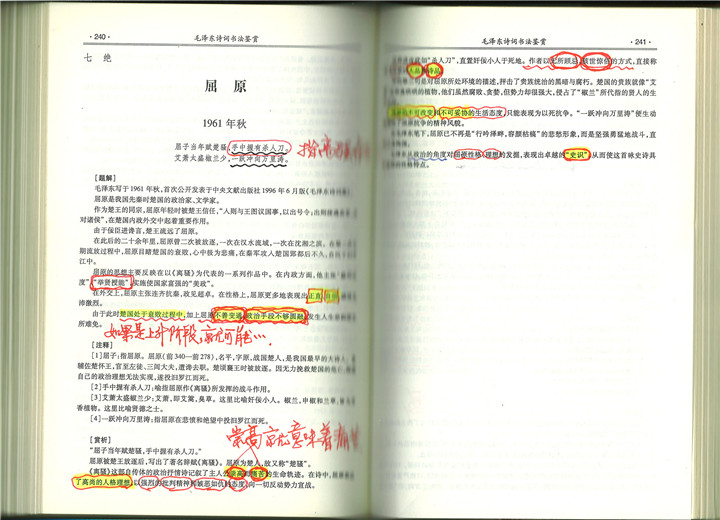 ·240· 毛泽东诗词书法鉴赏
七 绝
屈 原
1961 年秋
屈子当年赋楚骚，手中握有杀人刀。
艾萧太盛椒兰少，一跃冲向万里涛。
[题解]
毛泽东写于 1961 年秋，首次公开发表于中央文献出版社 1996 年 6 月版《毛泽东诗词集》。
屈原是我国先秦时楚国的政治家、文学家。
作为楚王的同宗，屈原年轻时被楚王信任，“入则与王图议国事，以出号令；出则接遇宾客，应
对诸侯”，在楚国内政外交中起着重要作用。
由于佞臣进谗言，楚王疏远了屈原。
在此后的二十余年里，屈原曾二次被放逐，一次在汉水流域，一次在沅湘之滨。在第二次
期流放过程中，屈原目睹楚国的衰败，心中极为悲痛，在秦军攻入楚国郢都后不久，自投
江中。
屈原的思想主要反映在以《离骚》为代表的一系列作品中。在内政方面，他主张
度”，“举贤授能”，实施使国家富强的“美政”。
在外交上，屈原主张连齐抗秦，政见超卓。在性格上，屈原更多地表现出正直
沛激烈。
由于此时楚国处于衰败过程中，加上屈原不善变通，政治手段不够圆融，发生人生悲剧
所难免。
如果是上升阶段，就可能…
[注释]
[1]屈子：指屈原。屈原（前 340—前 278），名平，字原，战国楚人，是我国最早的大诗人。
辅佐楚怀王，官至左徒、三闾大夫，遭谗去职。楚顷襄王时被放逐。因无力挽救楚国的危亡，
自己的政治理想无法实现，遂投汨罗江而死。
[2]手中握有杀人刀：喻指屈原作《离骚》所发挥的战斗作用。
[3]艾萧太盛椒兰少：艾萧，即艾蒿，臭草。这里比喻奸佞小人。椒兰，申椒和兰草，皆为
香植物。这里比喻贤德之士。
[4]一跃冲向万里涛：指屈原在悲愤和绝望中投汨罗江而死。
崇高就意味着
[赏析]
“屈子当年赋楚骚，手中握有杀人刀。”
屈原被楚王放逐后，写出了著名辞赋《离骚》。屈原为楚人，故又称“楚骚”。
《离骚》这部自传体的政治抒情诗记叙了主人公崇高而痛苦的生命轨迹。在诗中，屈原
了高尚的人格理想，以强烈的批判精神和嫉恶如仇的态度，向一切反动势力宣战。
毛泽东诗词书法鉴赏 ·241·
“杀人刀”，直置奸佞小人于死地。作者以无所顾忌、骇世惊俗的方式，直接称
人品、诗品。
是对屈原所处环境的描述，抨击了贵族统治的黑暗与腐朽。楚国的贵族就像“艾
的植物，他们虽然腐败、贪婪，但势力却很强大，侵占了“椒兰”所代指的贤人的生
不可妥协的生活态度，只能表现为以死抗争。“一跃冲向万里涛”便生动
屈原抗争的精神风貌。
笔下，屈原已不再是“行吟泽畔，容颜枯槁”的悲愁形象，而是坚强勇猛地战斗，直
从政治的角度对屈原性格、理想的发掘，表现出卓越的“史识”，从而使这首咏史诗具
性格特点。